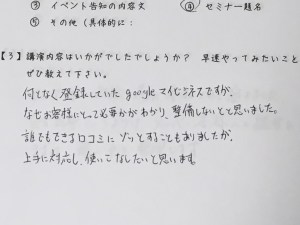 ③ イベント告知の内容文 ④ セミナー題名
⑤ その他(具体的に:
【3】講演内容はいかがでしたでしょうか? 早速やってみたいこと
ぜひ教えて下さい。
何となく登録していた googleマイビジネスですが、
なぜお客様にとって必要かがわかり、整備しないとと思いました。
誰でもできる口コミにゾッとすることもありましたが、
上手に対応し、使いこなしたいと思います。